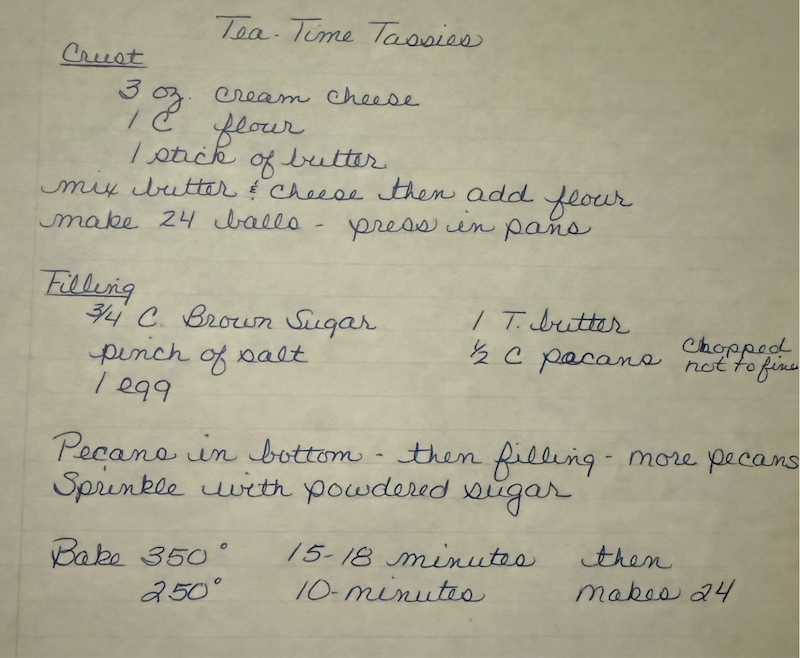 Tea-Time Tassies
Crust
3 oz. cream cheese
1 C flour
1 stick of butter
mix butter & cheese then add flour
make 24 balls - press in pans
Filling
3/4 C. Brown Sugar
pinch of salt
1 egg
1 T. butter
1/2 C pecans chopped
not to fine
Pecans in bottom - then filling - more pecans
Sprinkle with powdered sugar
Bake 350° 15-18 minutes then
250° 10-minutes makes 24